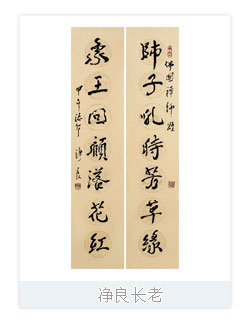 師子吼時芳草綠
象王回顧落花紅
甲午
净良
净良长老